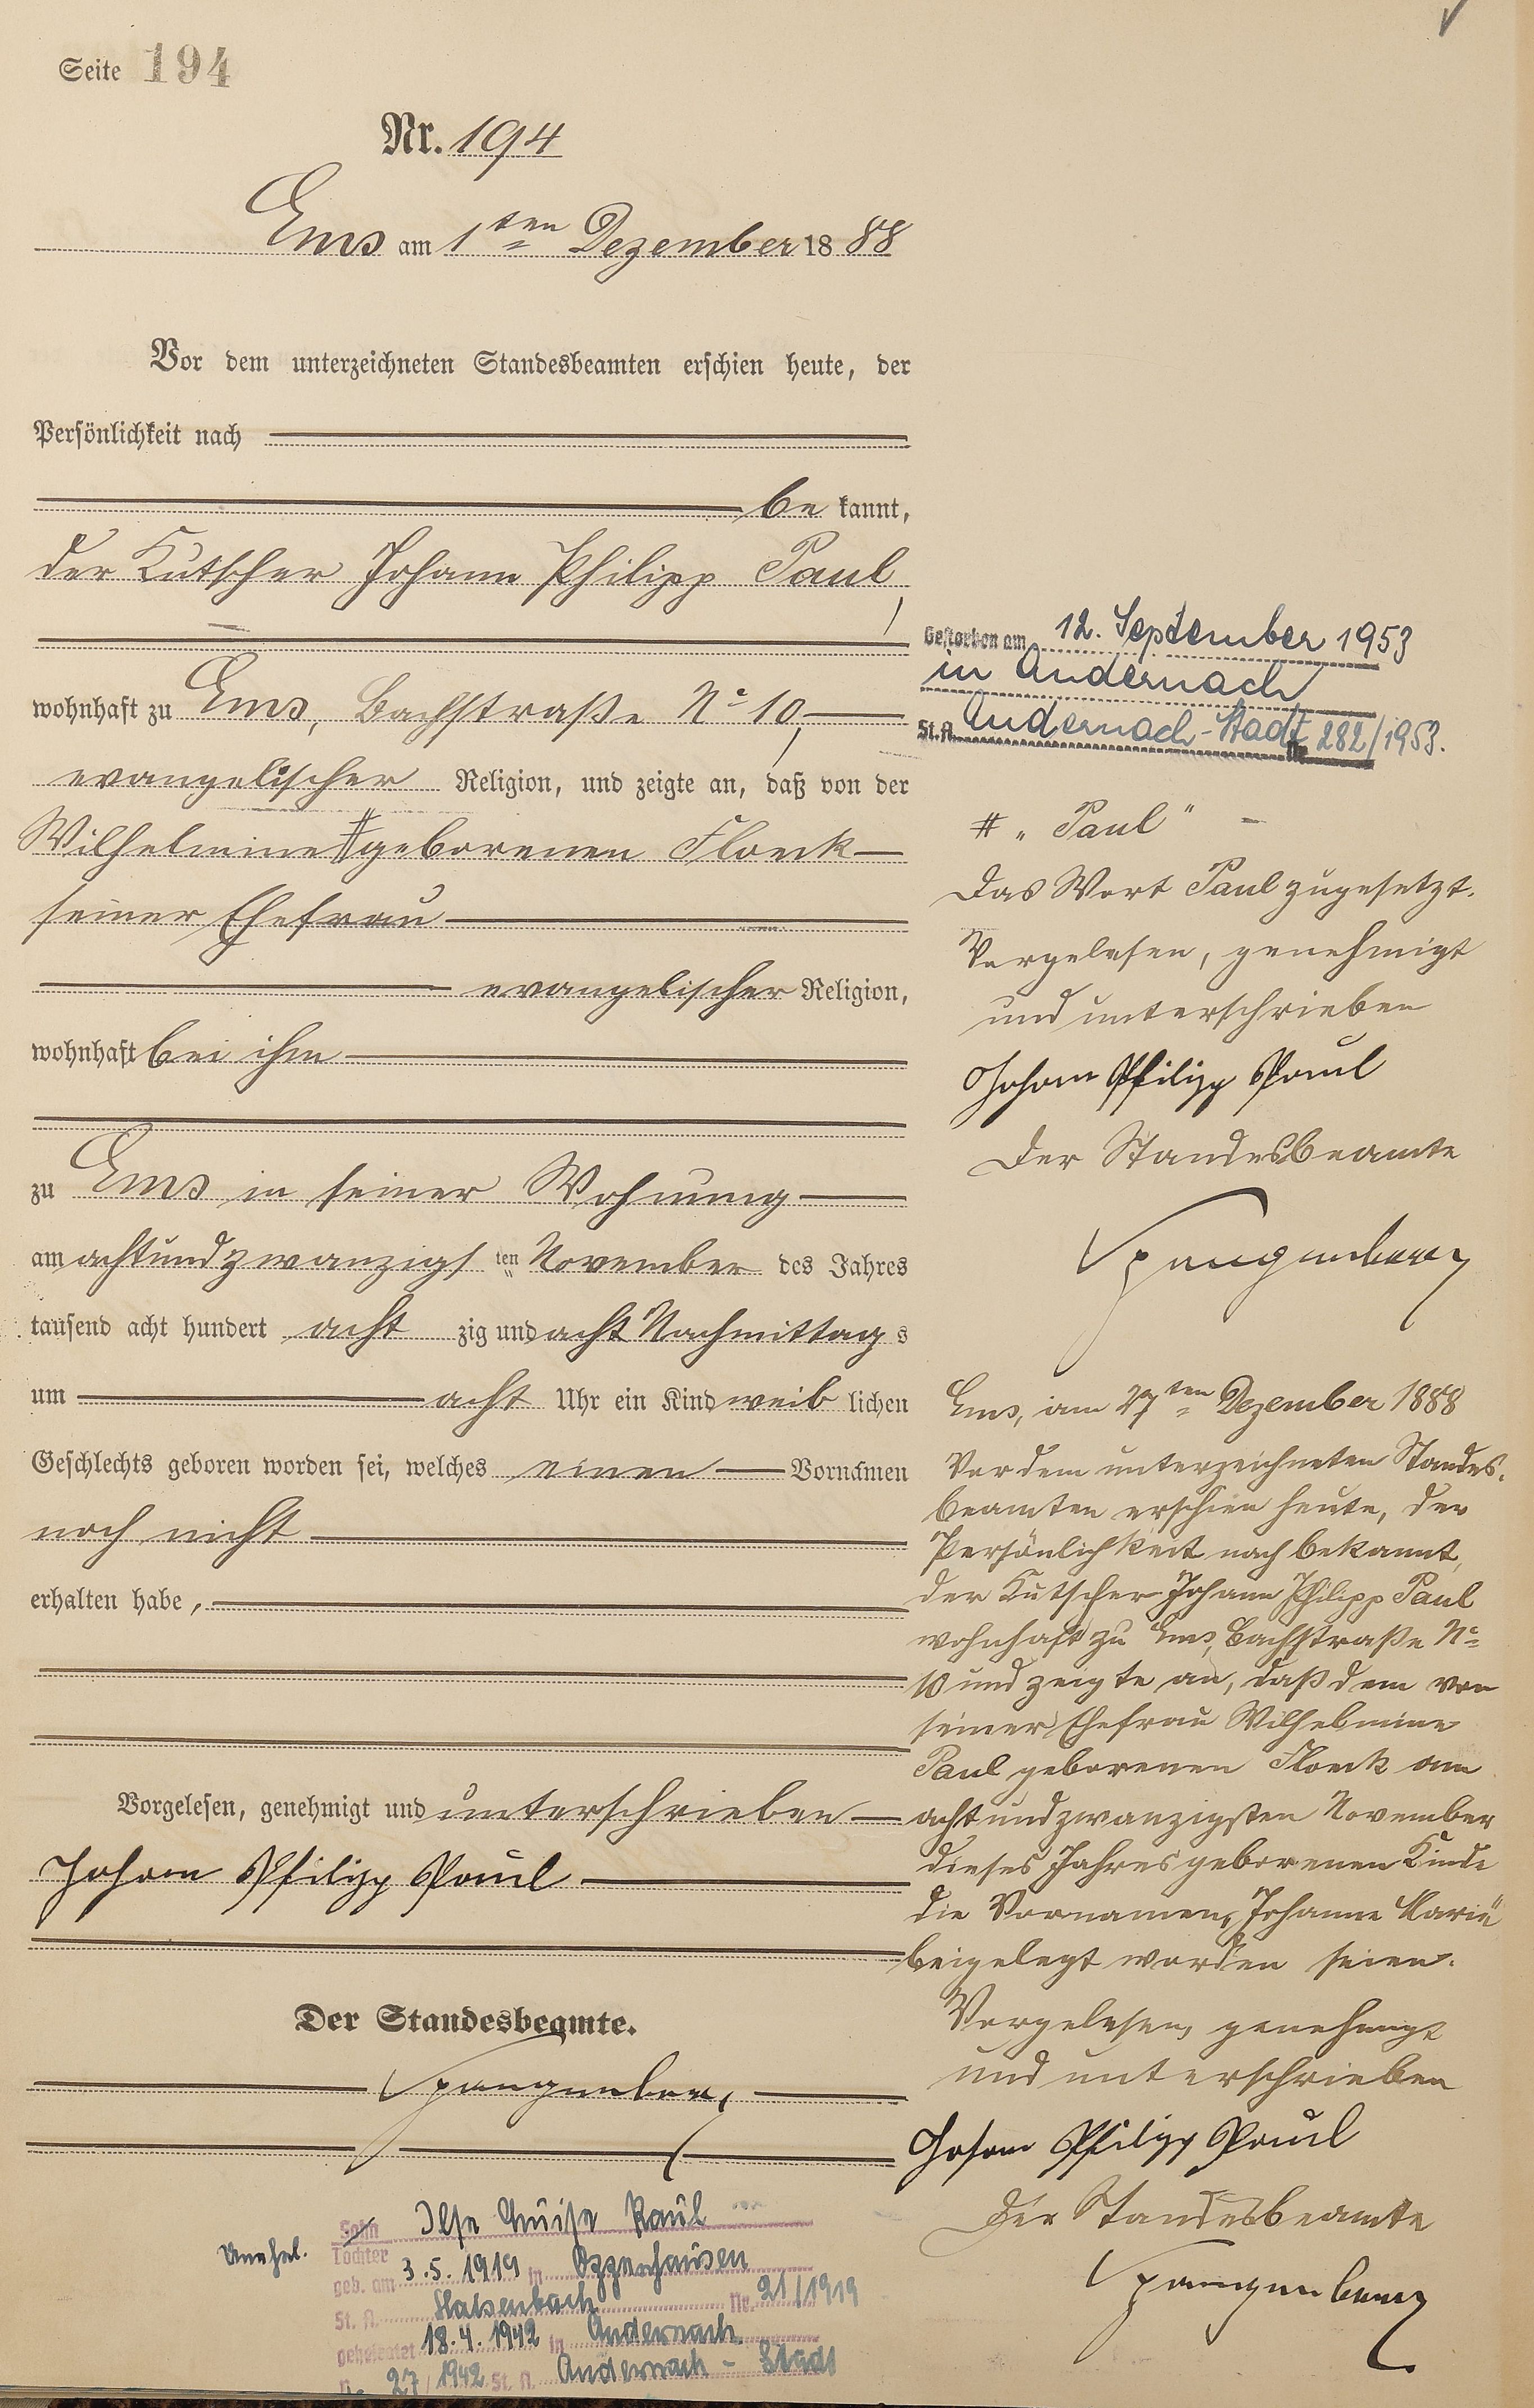 Seite 194
Nr. 194
Ems am 1ten Dezember 1888
Vor dem unterzeichneten Standesbeamten erschien heute, der
Persönlichkeit nach
be kannt,
der Kutscher Johann Philipp Paul,
wohnhaft zu Ems, Bachstraße No 10,
evangelischer Religion, und zeigte an, daß von der
Wilhelmine # geborenen Floeck
seiner Ehefrau
evangelischer Religion,
wohnhaft bei ihm
zu Ems in seiner Wohnung
am achtundzwanzigsten November des Jahres
tausend acht hundert acht zig und acht Nachmittags
um acht Uhr ein Kind weib lichen
Geschlechts geboren worden sei, welches einen Vornamen
noch nicht
erhalten habe,
Vorgelesen, genehmigt und unterschrieben
Johann Philipp Paul
Der Standesbeamte.
Spangenberg
Unehel. Sohn Tochter Ilse Luise Paul
geb. am 3.5.1919 in
St. A. Halsenbach Nr. 21/1919
geheiratet 18.4.1942 in Andernach
Nr. 27/1942 St. A. Andernach - Stadt
Gestorben am 12. September 1953
in Andernach
St. A. Andernach-Stadt Nr. 282/1953.
# „Paul"
Das Wort Paul zugesetzt.
Vorgelesen, genehmigt
und unterschrieben
Johann Philipp Paul
Der Standesbeamte
Spangenberg
Ems, am 27ten Dezember 1888
Vor dem unterzeichneten Standes-
beamten erschien heute, der
Persönlichkeit nach bekannt,
der Kutscher Johann Philipp Paul
wohnhaft zu Ems, Bachstraße No
10 und zeigte an, daß dem von
seiner Ehefrau Wilhelmine
Paul geborenen Floeck am
achtundzwanzigsten November
dieses Jahres geborenen Kinde
die Vornamen „Johanne Marie"
beigelegt worden seien.
Vorgelesen, genehmigt
und unterschrieben
Johann Philipp Paul
Der Standesbeamte
Spangenberg